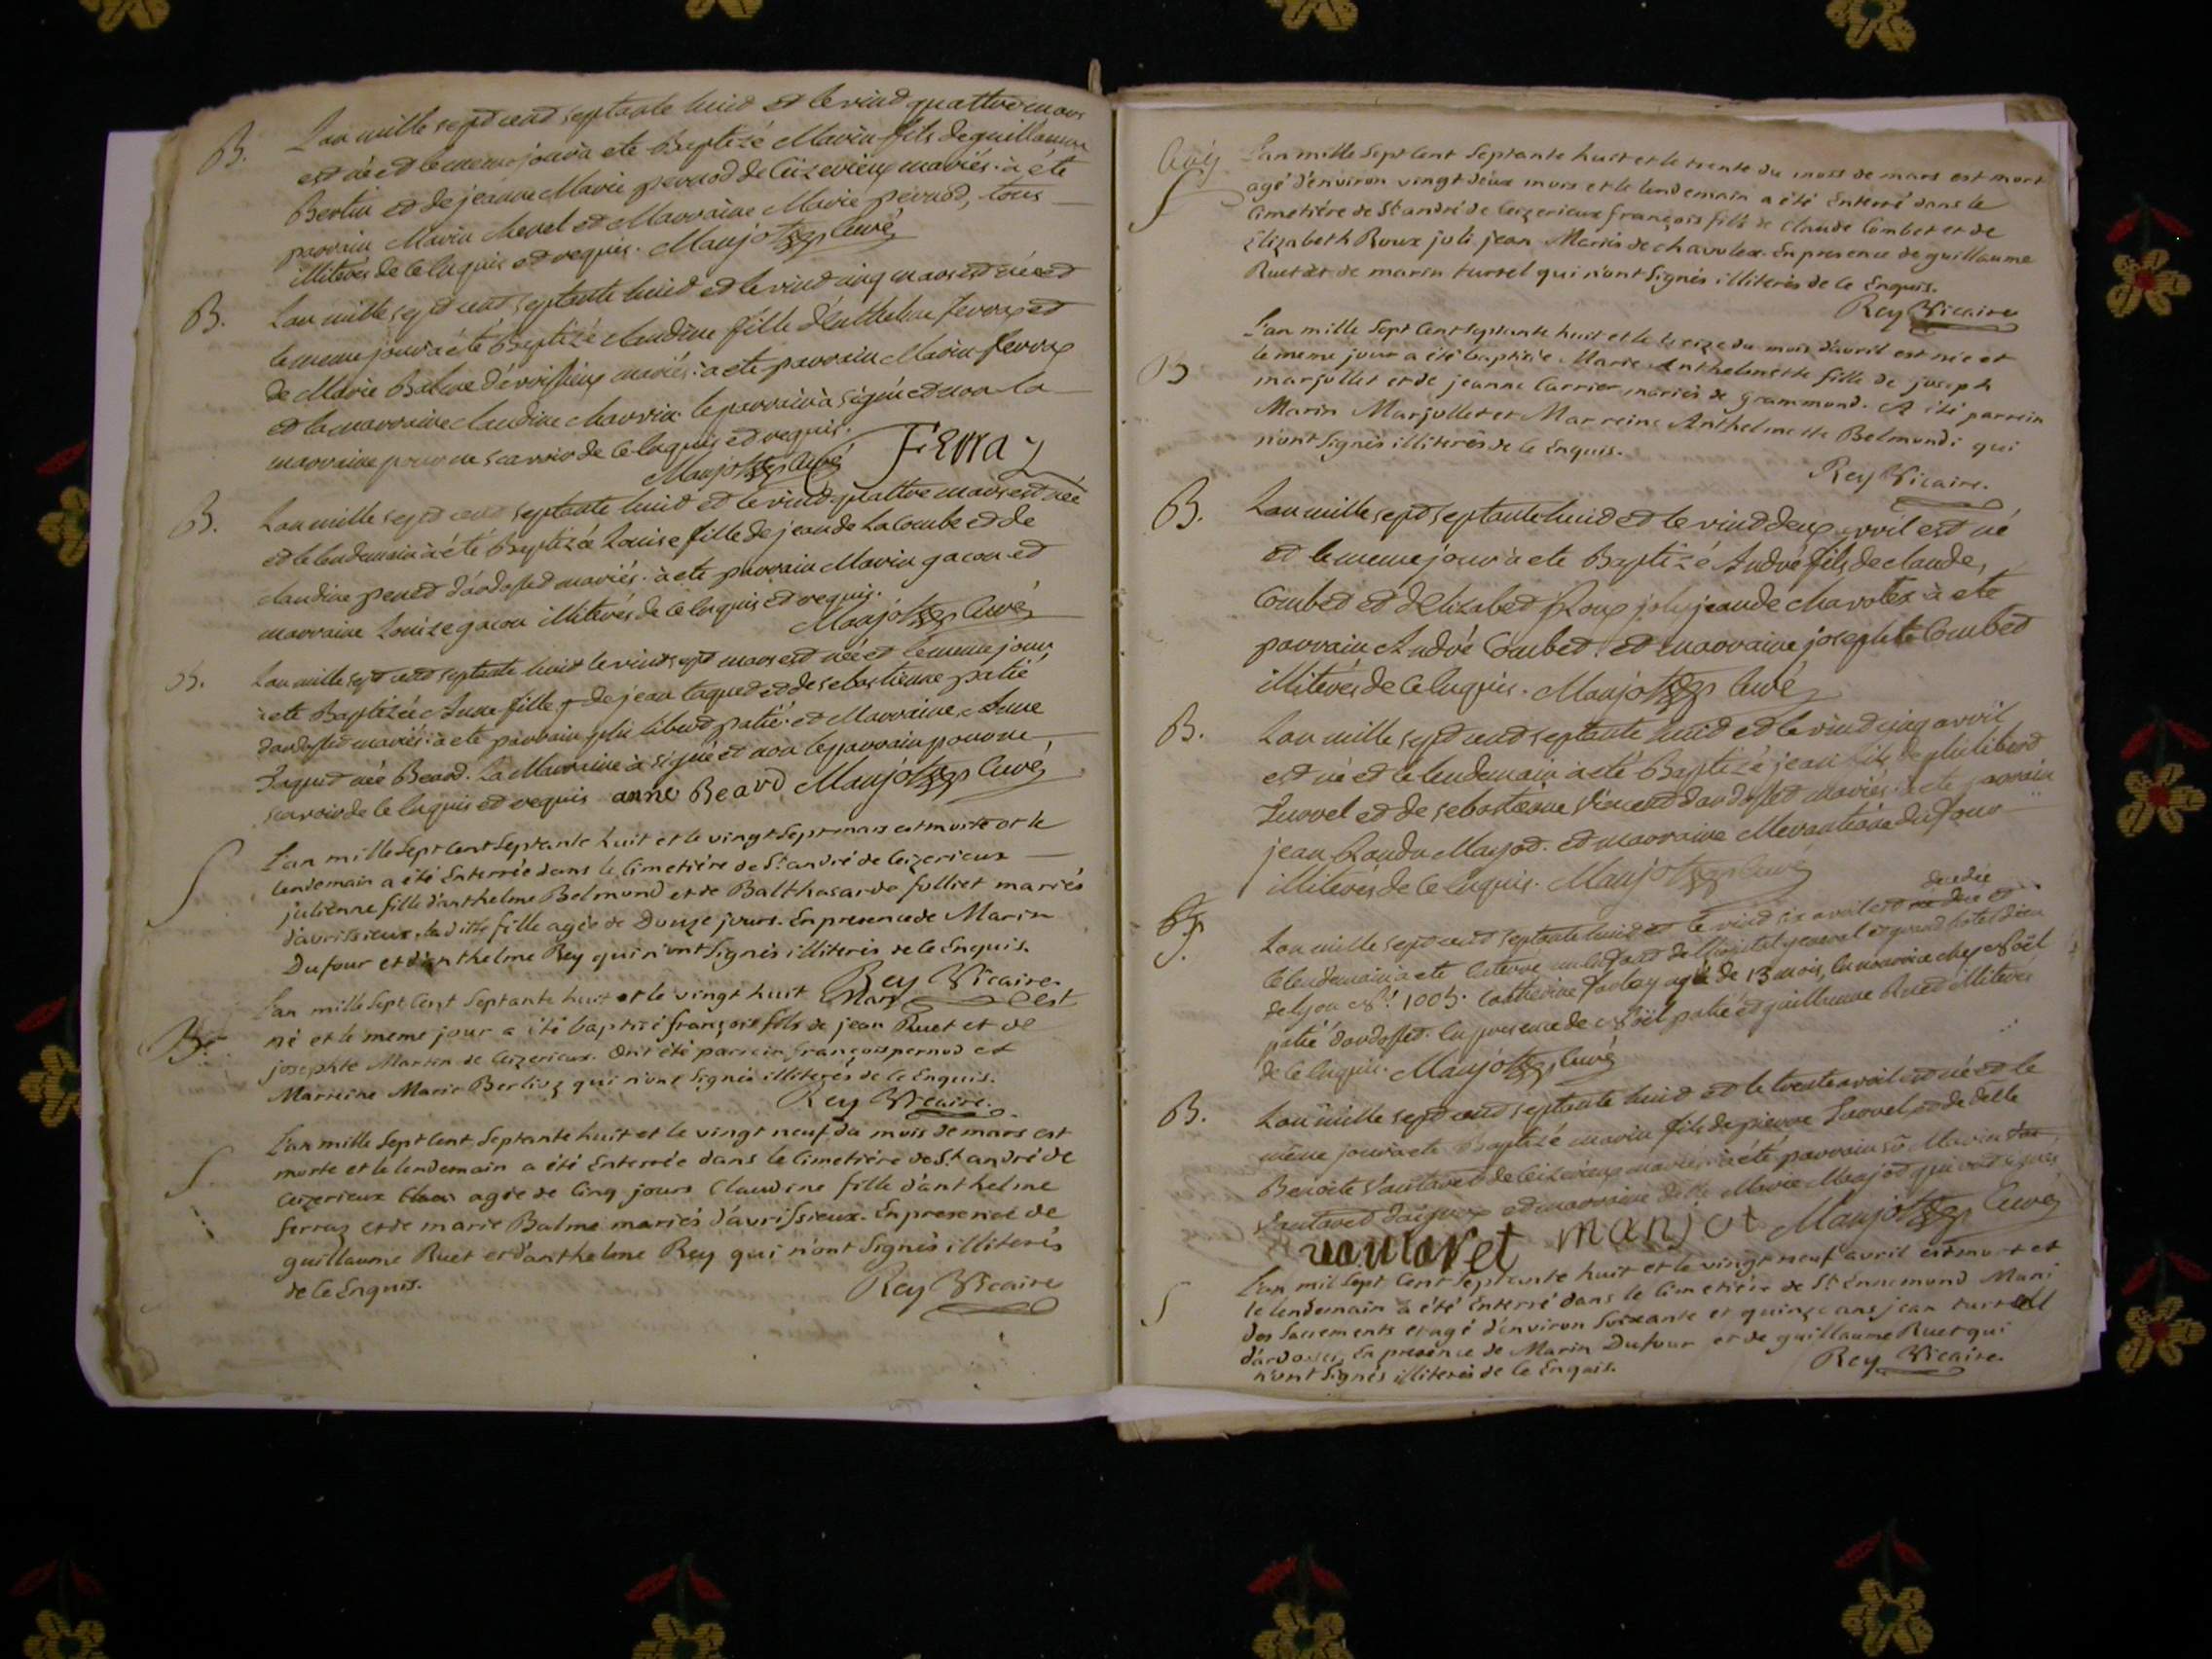 B. L'an mille sept cent septante huid et le vind quattre mars
est né et le meme jour à ete Baptizé Marin fils de guillaume
Bertin et de jeanne Marie pernod de Ceizerieux mariés. à ete
parrain Marin Mevel et Marraine Marie pernod, tous
illiterés de ce Enquis et requis. Manjot curé
B. L'an mille sept cent septante huid et le vind cinq mars est née et
le meme jour à été Baptizée claudine fille d'Enthelme ferraz et
de Marie Balme d'evrissieux mariés: a ete parrain Marin ferraz
et la marraine claudine charvin. le parrain à signé et non la
marraine pour ne scavoir de ce Enquis et requis.
Manjot curé Ferraz
B. L'an mille sept cent septante huid et le vind quattre mars est née
et le lendemain à été Baptizée Louise fille de jean de La Combe et de
claudine pened d'ardosset mariés. à ete parrain Marin gacon et
marraine Louize gacon illiterés de ce Enquis et requis.
Manjot curé
B. L'an mille sept cent septante huit le vind sept mars est née et le meme jour
à ete Baptizée Anne fille de jean taqued et de sebastienne patié
d'ardosset mariés: à ete parrain philibert patié. et Marraine Anne
taqued née Beard. La Marraine à signé et non le parrain pour ne
scavoir de ce Enquis et requis anne Beard Manjot curé
S L'an mille Sept Cent Septante huit et le vingt Sept mars est morte et le
lendemain a été Enterrée dans le Cimetiére de St. andré de Ceizerieux
julienne fille d'anthelme Belmond et de Balthasarde folliet mariés
d'avrissieux. la ditte fille agée de Douze jours. En presence de Marin
Dufour et d'anthelme Rey qui n'ont Signés illiterés de ce Enquis.
Rey Vicaire
B. L'an mille Sept Cent Septante huit et le vingt huit Mars est
né et le meme jour a été baptisé françois fils de jean Ruet et de
josephte Martin de Ceizerieux. Ont été parrein françois pernod et
Marreine Marie Berlioz qui n'ont Signés illiterés de ce Enquis.
Rey Vicaire.
S L'an mille Sept Cent Septante huit et le vingt neuf du mois de mars est
morte et le lendemain a été Enterrée dans le Cimetiére de St. andré de
Ceizerieux agée de Cinq jours Claudine fille d'anthelme
ferraz et de marie Balme mariés d'avrissieux. En presence de
guillaume Ruet et d'anthelme Rey qui n'ont Signés illiterés
de ce Enquis. Rey Vicaire
S L'an mille Sept Cent Septante huit et le trente du mois de mars est mort
agé d'environ vingt deux mois et le lendemain a été Enterré dans le
Cimetiére de St andré de Ceizerieux françois fils de Claude Combet et de
Elizabeth Roux joli jean Mariés de chavolex. En presence de guillaume
Ruet et de marin turrel qui n'ont Signés illiterés de ce Enquis.
Rey Vicaire
B L'an mille Sept Cent Septante huit et le treize du mois d'avril est née et
le meme jour a été baptisée Marie Anthelmette fille de joseph
marjollet et de jeanne Carrier mariés de grammond. A été parrein
Marin Marjollet et Marreine Anthelmette Belmond qui
n'ont Signés illiterés de ce Enquis.
Rey Vicaire.
B. L'an mille sept septante huid et le vind deux avril est né
et le meme jour à ete Baptizé André fils de claude,
Combet et d'Elizabet Roux joly jean de chavolex à ete
parrain André Combet. et marraine josephte Combet
illiterés de ce Enquis. Manjot curé
B. L'an mille sept cent septante huid et le vind cinq avril
est né et le lendemain à été Baptizé jean fils de philibert
turrel et de sebastienne Vincent d'ardosset mariés. à ete parrain
jean Manjod. et marraine dufour
illiterés de ce Enquis. Manjot curé
S. L'an mille sept cent septante huid et le vind six avril est decedée et
le lendemain à ete Enterré un Enfant de l'hopital general et grand hotel Dieu
de lyon N° 1005. Catherine agée de 13 mois, En nourrice chez Noël
patié d'ardosset. En presence de Noël patié et guillaume Rued illiterés
de ce Enquis. Manjot curé
B. L'an mille sept cent septante huid et le trente avril est né et le
même jour à ete Baptizé marin fils de pierre turrel et de delle
Benoite Vautaret de Ceizerieux mariés. à été parrain Sr Marin
Vautaret et marraine delle Marie Manjod qui ont signés
vautaret manjot Manjot Curé
S L'an mil Sept Cent Septante huit et le vingt neuf avril est mort et
le lendemain a été Enterré dans le Cimetiére de St Ennemond Muni
des Sacrements et agé d'environ Soixante et quinze ans jean turrell
d'ardosset, En presence de Marin Dufour et de guillaume Ruet qui
n'ont Signés illiterés de ce Enquis. Rey Vicaire